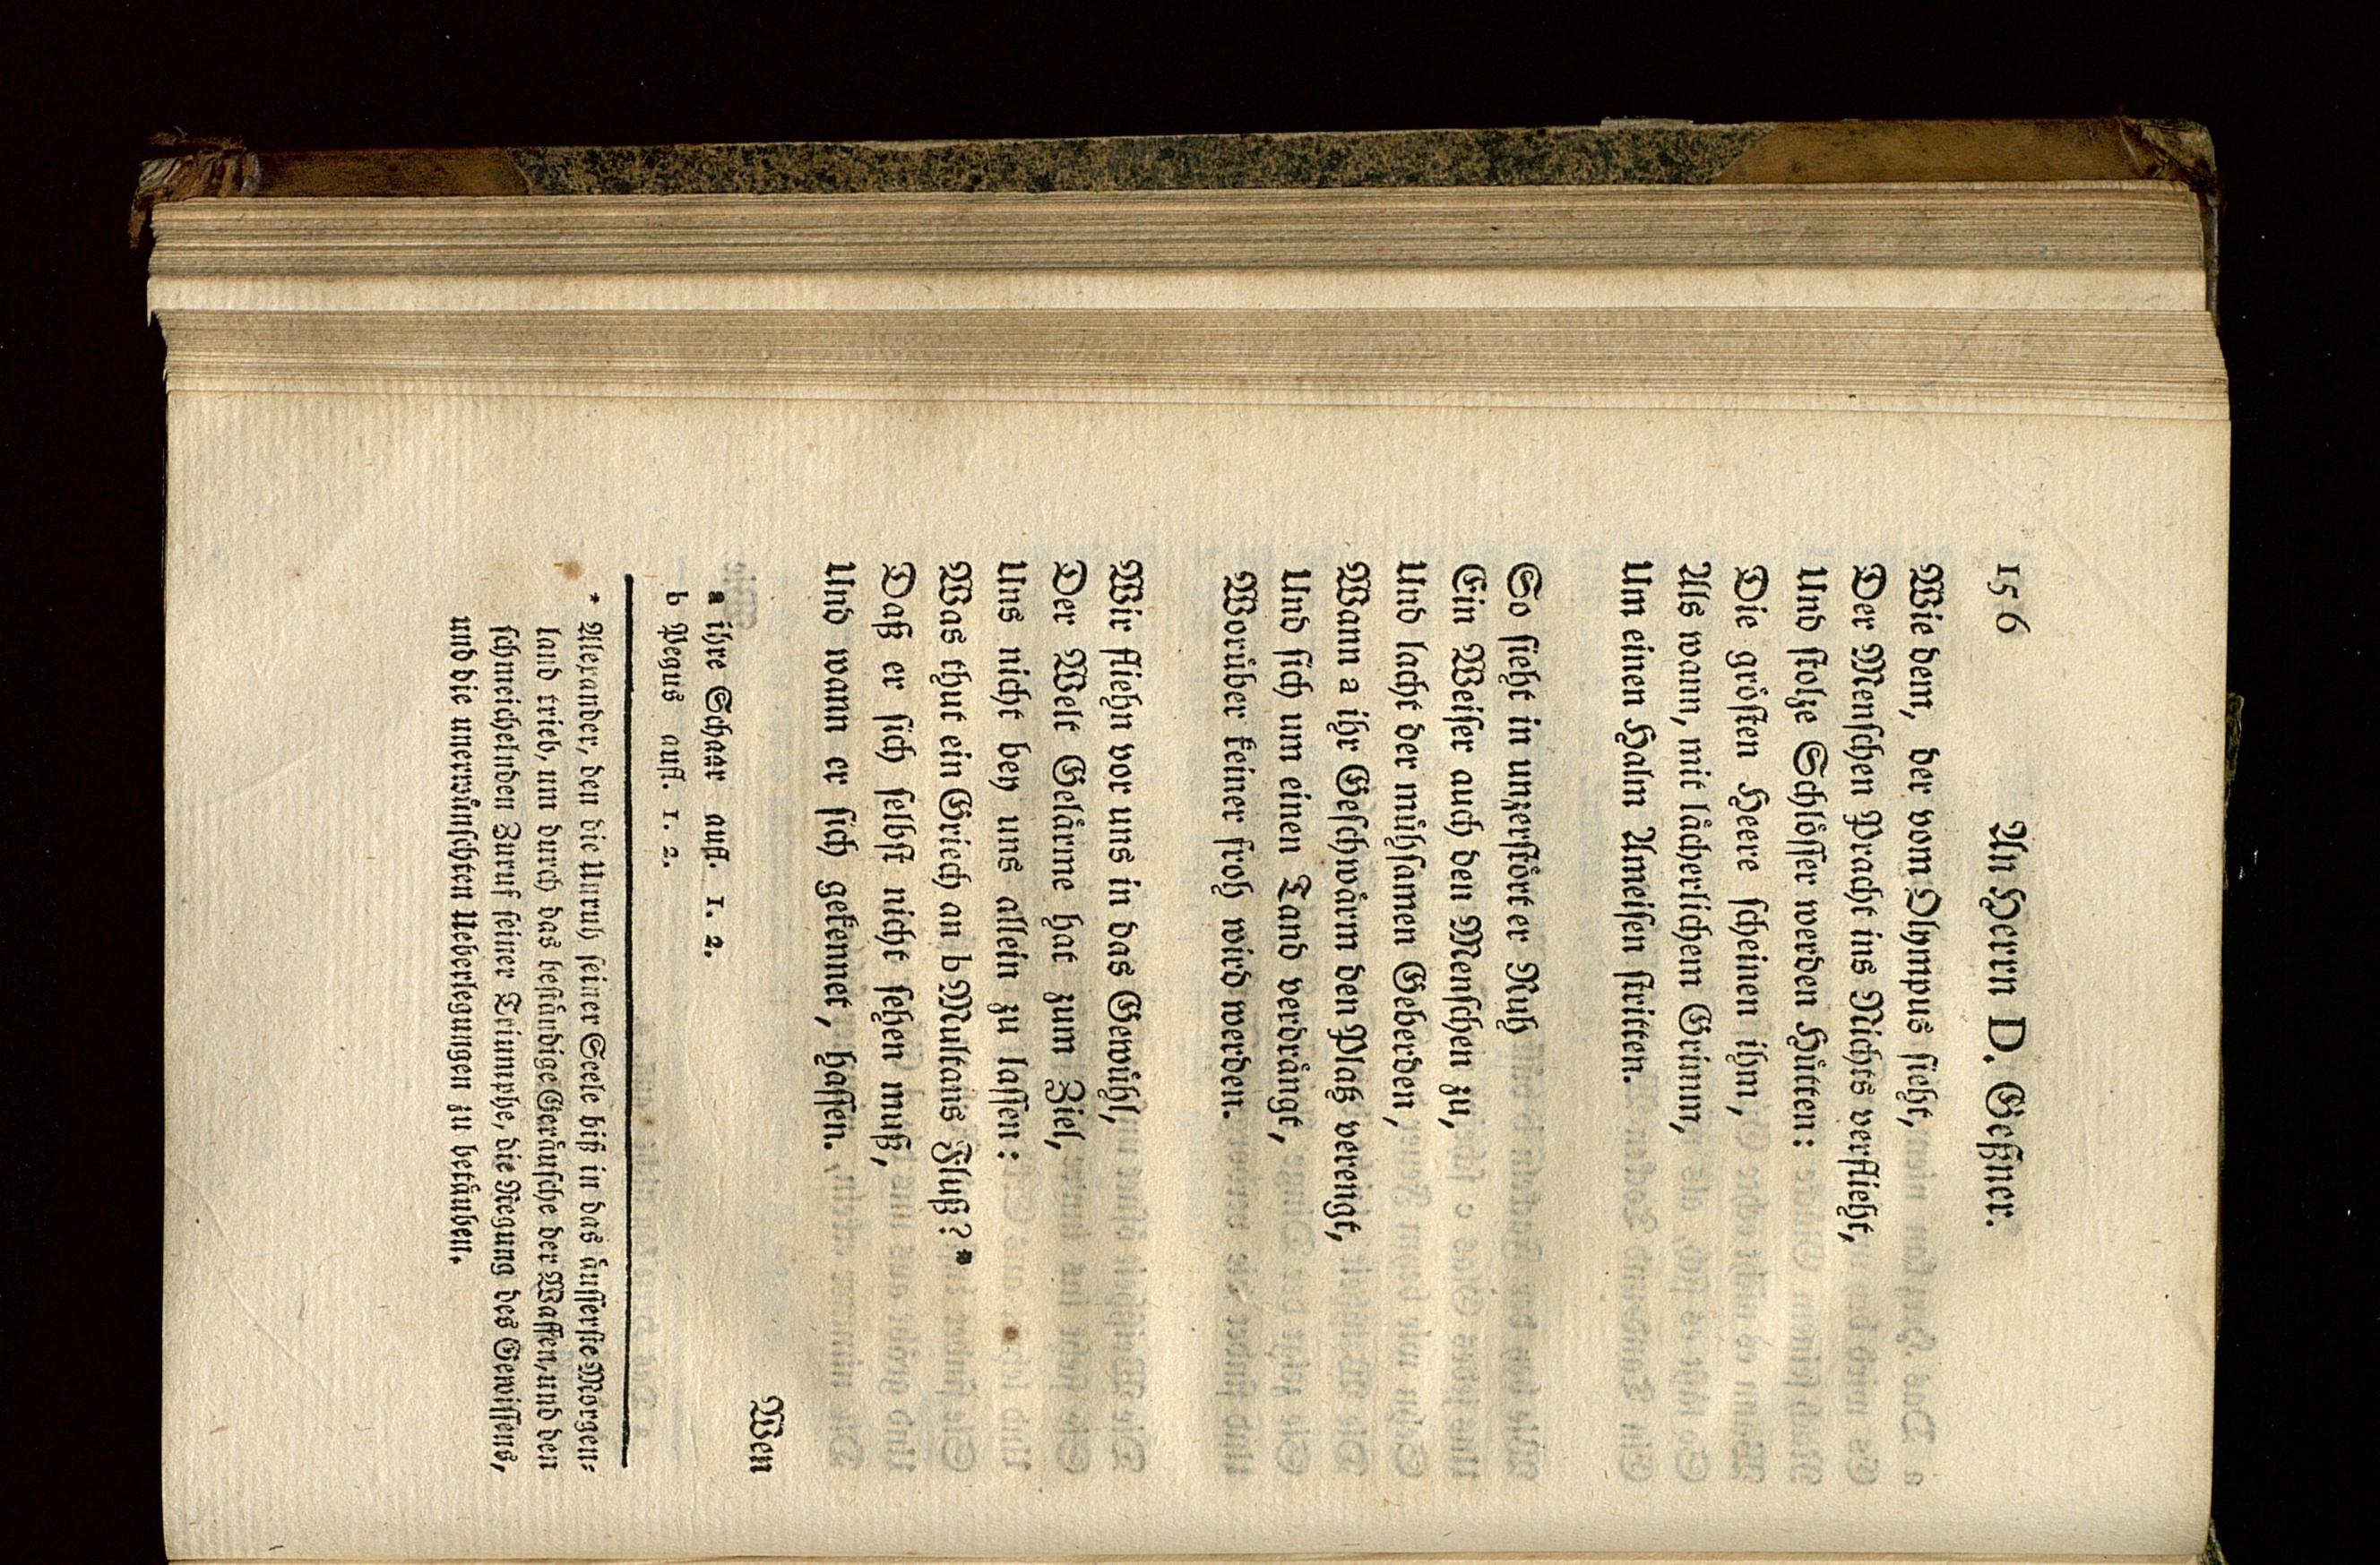 156 An Herrn D. Geßner.
Wie dem, der vom Olympus sieht,
Der Menschen Pracht ins Nichts verflieht,
Und stolze Schlösser werden Hütten:
Die grösten Heere scheinen ihm,
Als wann, mit lächerlichem Grimm,
Um einen Halm Ameisen stritten.
So sieht in unzerstörter Ruh
Ein Weiser auch den Menschen zu,
Und lacht der mühsamen Geberden,
Wann a ihr Geschwärm den Platz verengt,
Und sich um einen Tand verdrängt,
Worüber keiner froh wird werden.
Wir fliehn vor uns in das Gewühl,
Der Welt Gelärme hat zum Ziel,
Uns nicht bey uns allein zu lassen:
Was thut ein Griech an b Multans Fluß?*
Daß er sich selbst nicht sehen muß,
Und wann er sich gekennet, hassen.
Wem
a ihre Schaar aufl. 1. 2.
b Pegus aufl. 1. 2.
* Alexander, den die Unruh seiner Seele biß in das äusserste Morgen-
land trieb, um durch das beständige Geräusche der Waffen, und den
schmeichelnden Zuruf seiner Triumphe, die Regung des Gewissens,
und die unerwünschten Ueberlegungen zu betäuben.